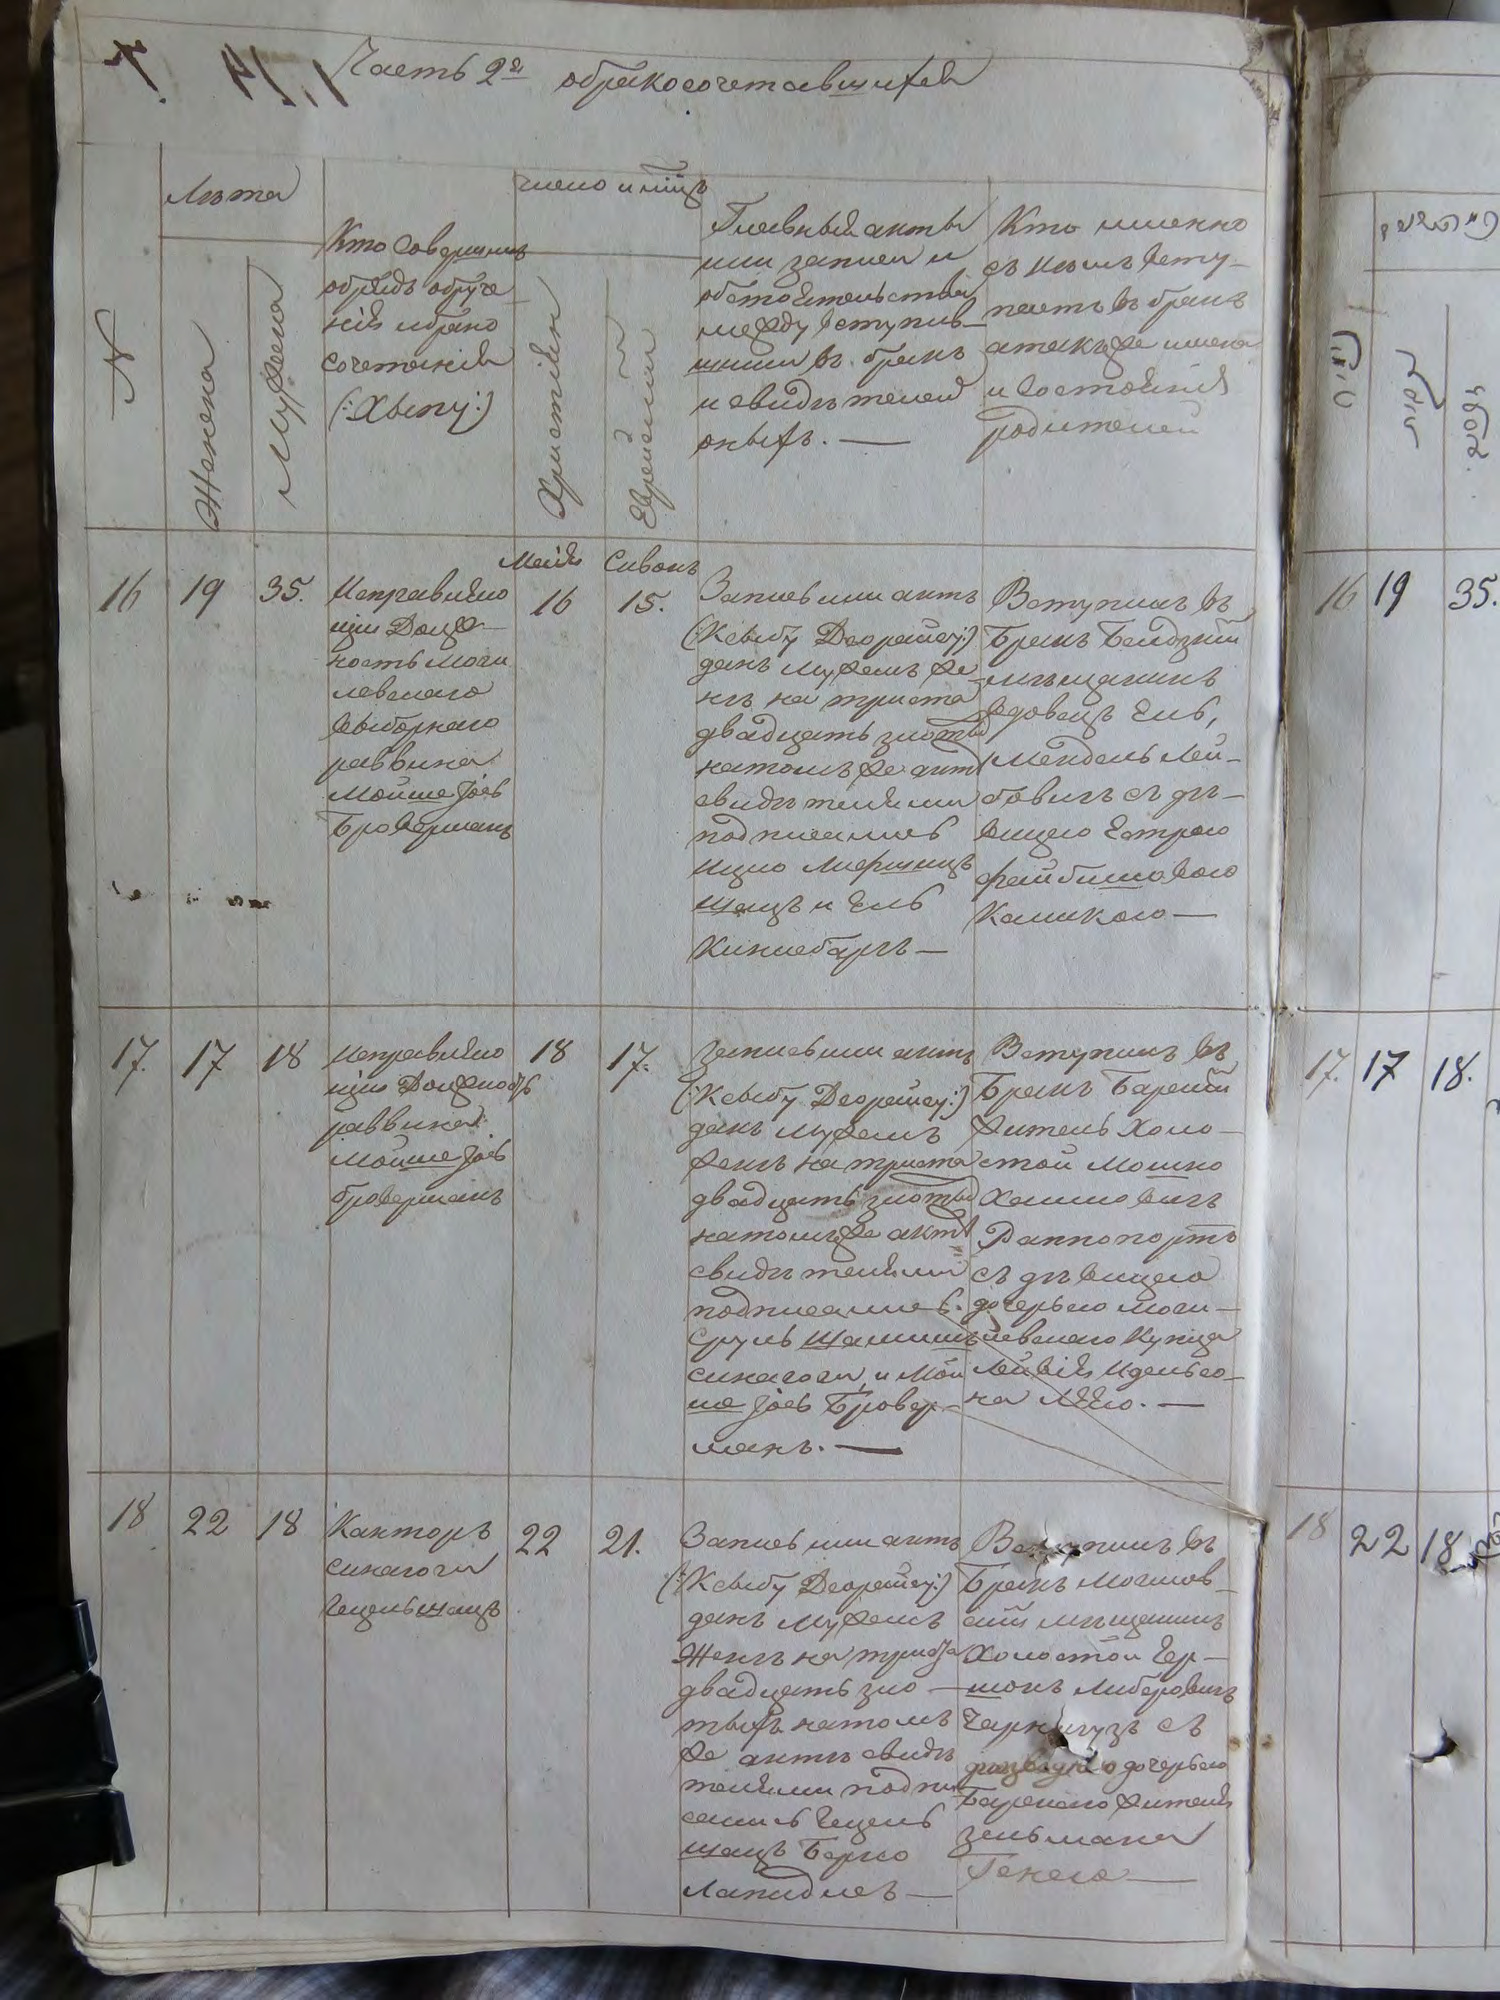 Часть 2я о бракосочетавшихся
Лѣта
число и мѣцъ
№
Женска
Мужеска
Кто совершилъ
обрядъ обруче
нія и брако
сочетанія
(:Хыпу:)
Христіян
Еврейскій
Главныя акты
или записи и
обстоятельства
между вступив-
шими въ бракъ
и свидѣтелей
оныхъ. —
Кто именно
съ кѣмъ всту-
паетъ въ бракъ
а также имена
и состоянія
родителей
Маія Сиванъ
16 19 35. 16 15.
Исправляю
щій Долж-
ность Моги
левскаго
выборнаго
раввина
Мойше Іось
Броверманъ
Запись или актъ
(:Ксыбу Деорайсу:)
данъ мужемъ же-
нѣ на триста
двадцать злотыхъ
на томъ же актѣ
свидѣтелями
подписались
Ицко
Шацъ и Ель
Вступилъ въ
Бракъ
мѣщанинъ
вдовецъ Ель,
Мендель Лей-
бовичъ съ дѣ-
вицею Естрою
Файбишовою
17. 17 18 18 17.
Исправляю
щій Должность
раввина
Мойше Іось
Броверманъ
Запись или актъ
(:Ксыбу Деорайсу:)
данъ мужемъ
женѣ на триста
двадцать злотыхъ
на томъ же актѣ
свидѣтелями
подписались.
Сруль Шамишъ
синагоги, и Мой
ше Іось Бровер-
манъ. —
Вступилъ въ
Бракъ Барскій
житель Холо-
стой Мошко
Хаимовичъ
Раппопортъ
съ дѣвицею
дочерью Моги-
левскаго Купца
Лейвія Идельсо-
на —
18 22 18 22 21.
Канторъ
синагоги
Гецель Шацъ
Запись или актъ
(:Ксыбу Деорайсу:)
данъ мужемъ
Женѣ на триста
двадцать зло-
тыхъ на томъ
же актѣ свидѣ
телями подпи
сались Гецель
Шацъ Берко
Лапидисъ —
Вступилъ въ
Бракъ Могилов-
скій мѣщанинъ
Холостой Гер-
шонъ Либеровичъ
съ
разводною дочерью
Барскаго жителя
Зельмана
Генею —
16 19 35.
17. 17 18.
18 22 18